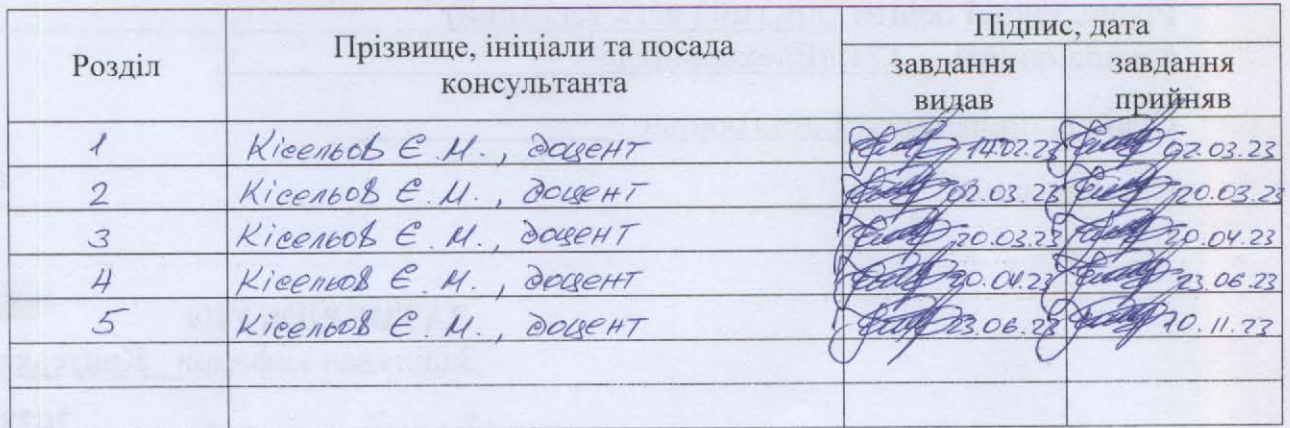 Розділ
Прізвище, ініціали та посада
консультанта
Підпис, дата
завдання
видав
завдання
прийняв
1 Кісельов Є. М., доцент 14.02.23 02.03.23
2 Кісельов Є. М., доцент 02.03.23 20.03.23
3 Кісельов Є. М., доцент 20.03.23 20.04.23
4 Кісельов Є. М., доцент 20.04.23 23.06.23
5 Кісельов Є. М., доцент 23.06.23 10.11.23